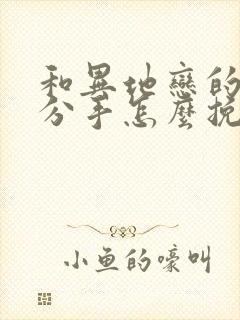 和異地戀的
分手怎麼挽
小魚的嚎叫